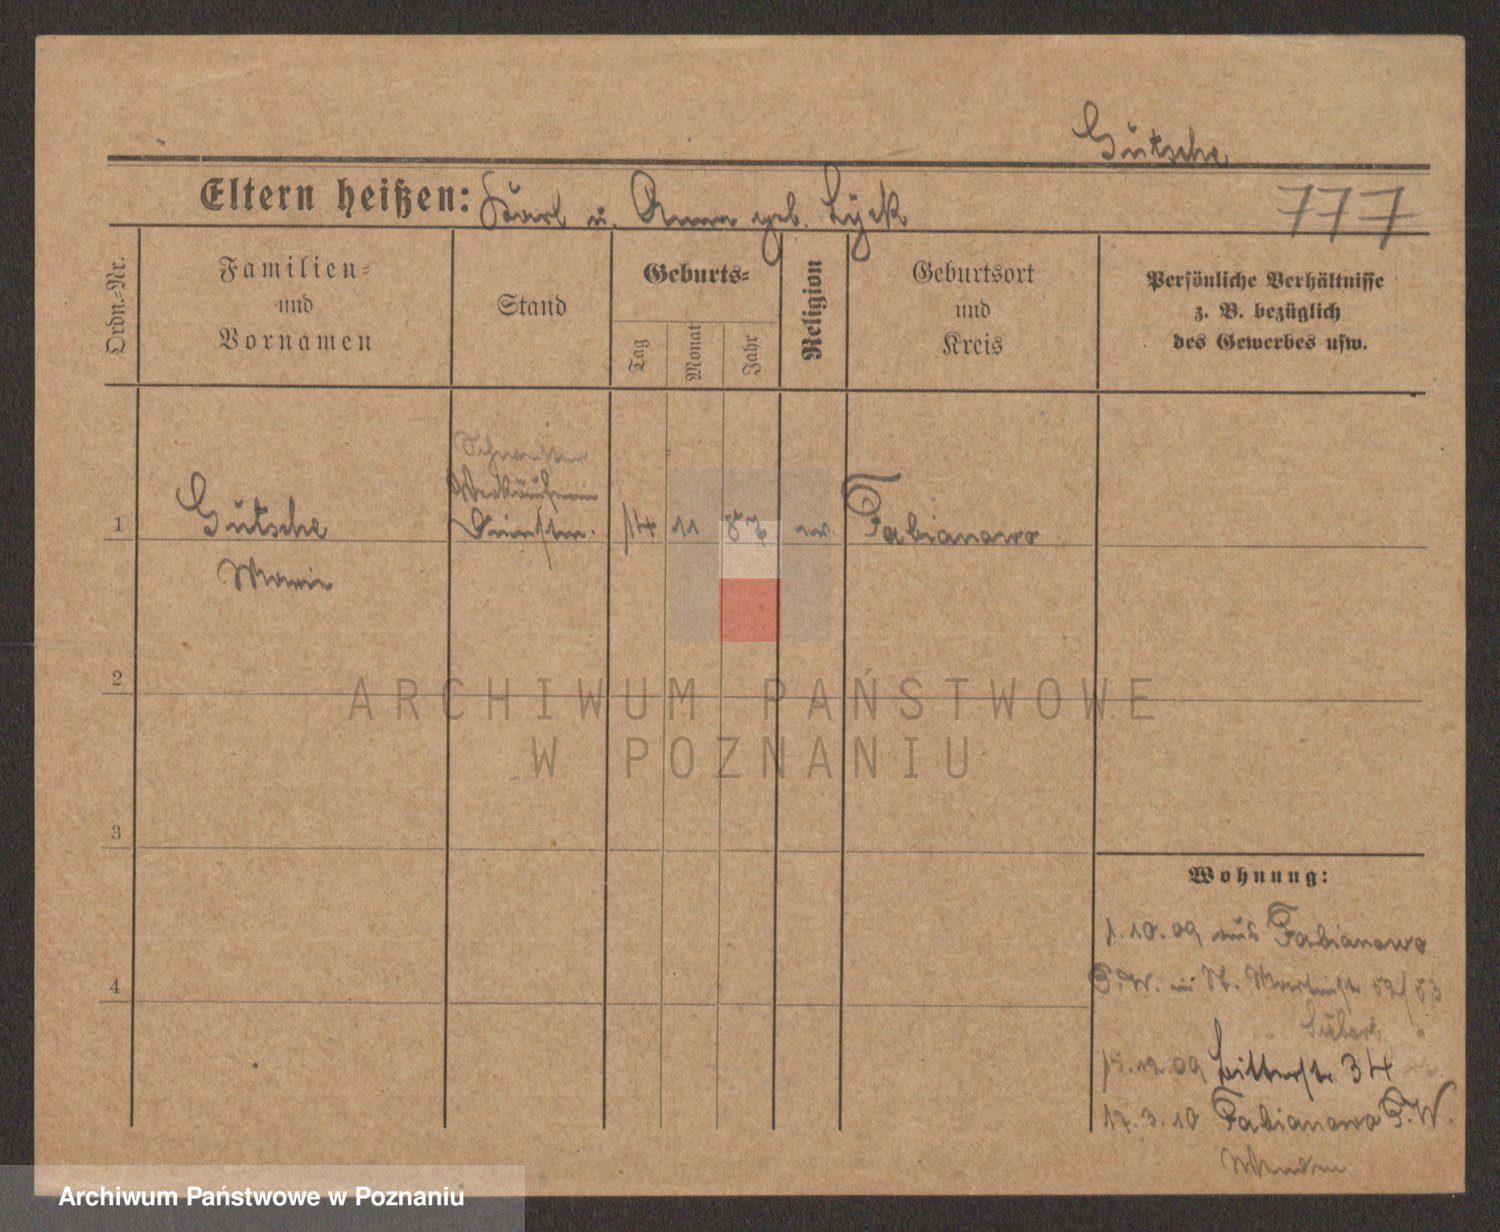 Gutsche
Eltern heißen: Karl u. Anna geb. Lyck
777
Ordn.-Nr.
Familien-
und
Vornamen
Stand
Geburts-
Tag
Monat
Jahr
Religion
Geburtsort
und
Kreis
Persönliche Verhältnisse
z. B. bezüglich
des Gewerbes usw.
Schwester
Verkäuferin
1 Gutsche 14 11 87 ev. Fabianowo
Marie
2
ARCHIWUM PAŃSTWOWE
W POZNANIU
3
Wohnung:
1.10.09 aus Fabianowo
P.W. in St. Martinstr. 52/53
4
15.12.09 Ritterstr. 34
17.3.10 Fabianowo P.W.
Archiwum Państwowe w Poznaniu